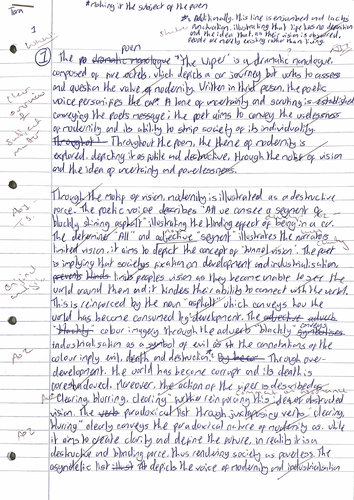 Tom
* making it the subject of the poem
* Additionally, this line is enjambed and lacks
punctuation, illustrating that life has no direction
and the idea that as their vision is obscured,
people are merely existing rather than living.
poem
The "The Wiper" is a dramatic monologue,
composed of five octets, which depicts a car journey but wants to assess
and question the value of modernity. Written in third person, the poetic
voice personifies the car. A tone of uncertainty and is established
conveying the poets message; the poet aims to convey the uselessness
of modernity and its ability to strip society of its individuality.
Throughout the poem, the theme of modernity is
explored, depicting it as futile and destructive, through the motifs of vision
and the idea of uncertainty and powerlessness.
Through the motif of vision, modernity is illustrated as a destructive
force. The poetic voice describes "All we can see a segment of
blackly shining asphalt" illustrating the blinding effect of being in a car.
The determiner "All" and "segment" illustrates the narrow
limited vision, it aims to depict the concept of "tunnel vision". The poet
is implying that societys fixation on development and industrialisation,
limits peoples vision as they become unable to see the
world around them and it hinders their ability to connect with the world.
This is reinforced by the noun "asphalt" which conveys how the
world has become consumed by development. The
colour imagery through the adverb "blackly" conveys
industrialisation as a symbol of evil as the connotations of the
colour imply evil, death and destruction. Through over-
development, the world has become corrupt and its death is
foreshadowed. Moreover, the action of the wiper is described as
"clearing, blurring, clearing", further reinforcing this idea of obstructed
vision. The paradoxical list through juxtaposing verbs "clearing,
blurring" clearly conveys the paradoxical nature of modernity as while
it aims to create clarity and define the future, in reality it is a
destructive and blinding force, thus rendering society as powerless. The
asyndetic list depicts the voice of modernity and industrialisation